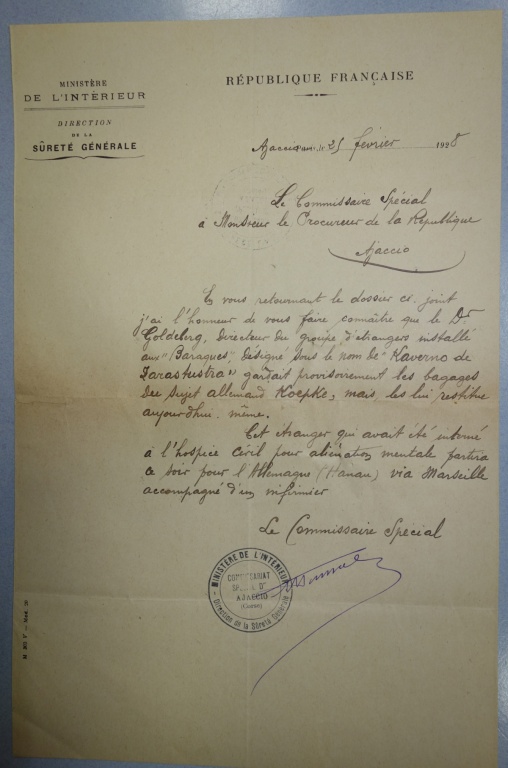 MINISTÈRE
DE L'INTÉRIEUR
DIRECTION
DE LA
SÛRETÉ GÉNÉRALE
RÉPUBLIQUE FRANÇAISE
Ajaccio, le 25 février 1928
Le Commissaire Spécial
à Monsieur le Procureur de la République
Ajaccio
E vous retournant le dossier ci-joint
j'ai l'honneur de vous faire connaître que le Dr
Goldberg, Directeur du groupe d'étrangers installé
aux "Baraques", désigné sous le nom de "Kaverno de
Zarastustra" gardait provisoirement les bagages
du sujet allemand Koepke, mais les lui restitue
aujourd'hui même.
Cet étranger qui avait été interné
à l'hospice civil pour aliénation mentale partira
ce soir pour l'Allemagne (Hanau) via Marseille
accompagné d'un infirmier
Le Commissaire Spécial
MINISTÈRE DE L'INTÉRIEUR
COMMISSARIAT
SPÉCIAL D'
AJACCIO
(Corse)
Direction de la Sûreté Générale